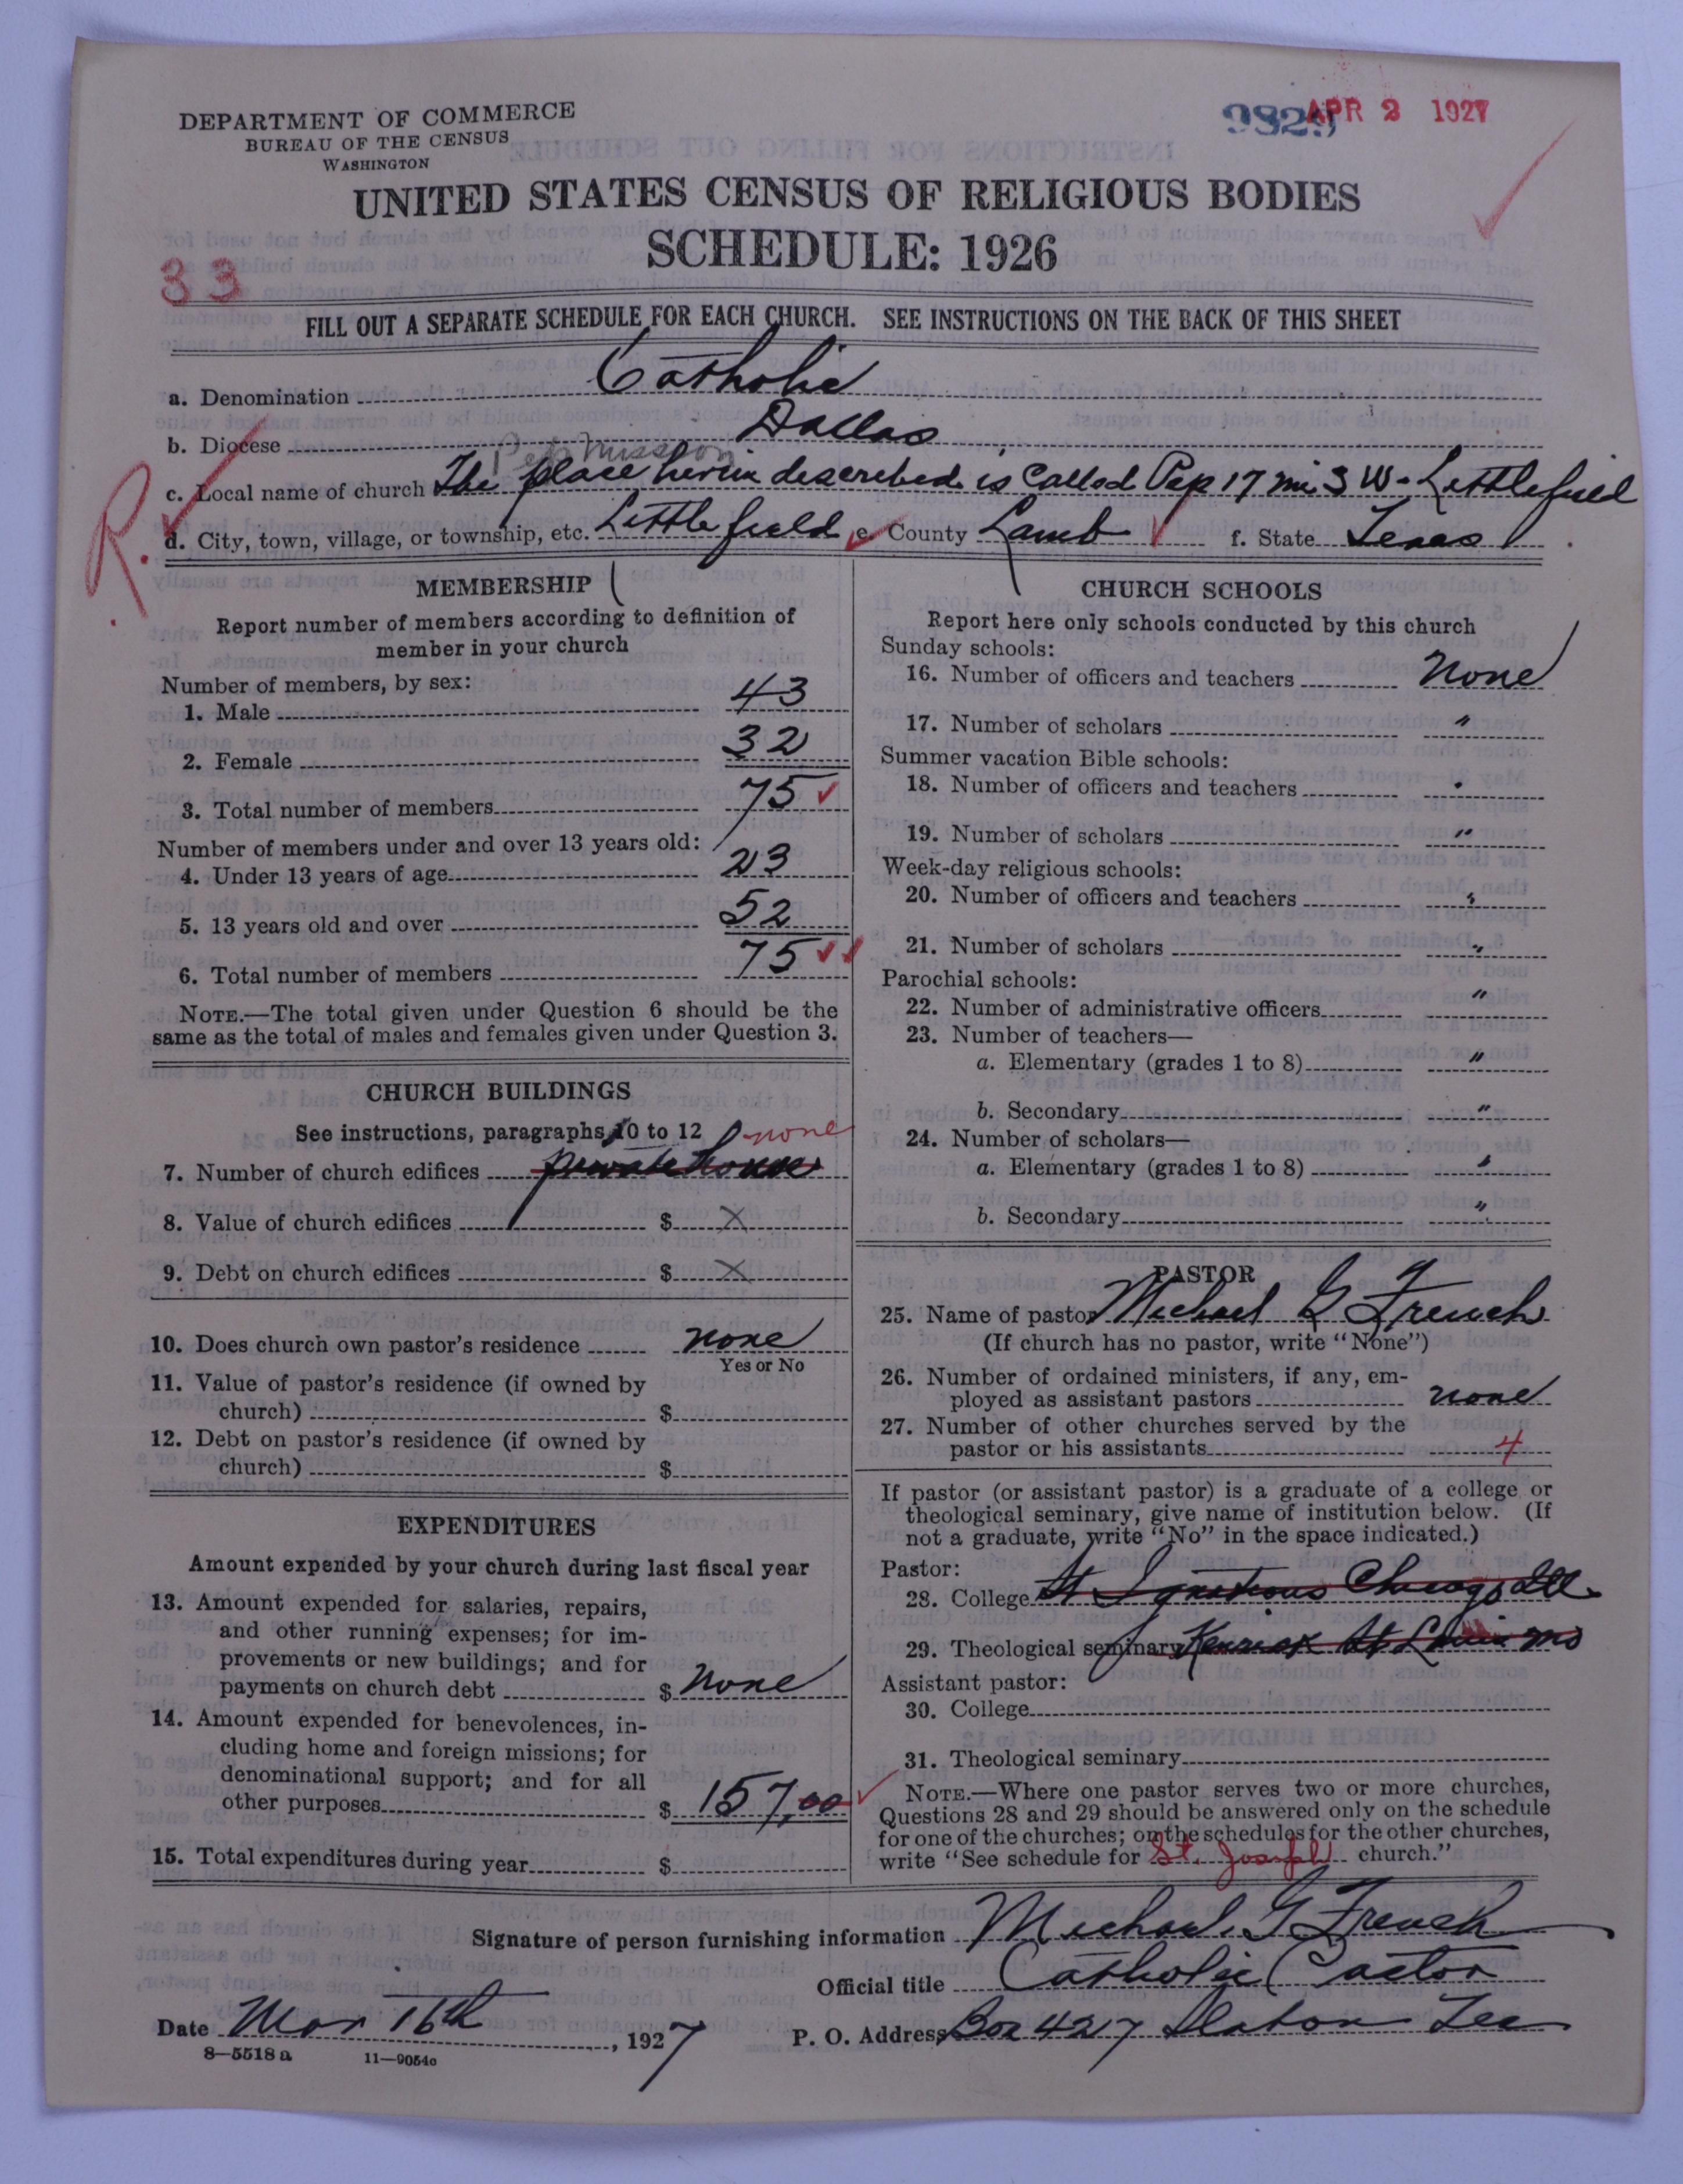 DEPARTMENT OF COMMERCE
BUREAU OF THE CENSUS
WASHINGTON
9829 APR 2 1927
UNITED STATES CENSUS OF RELIGIOUS BODIES
SCHEDULE: 1926
33
FILL OUT A SEPARATE SCHEDULE FOR EACH CHURCH. SEE INSTRUCTIONS ON THE BACK OF THIS SHEET
a. Denomination Catholic
b. Diocese Dallas
Pep Mission
c. Local name of church The place herin described is Called Pep 17 mi S W. Littlefield
R.
d. City, town, village, or township, etc. Littlefield e. County Lamb f. State Texas
MEMBERSHIP
Report number of members according to definition of
member in your church
Number of members, by sex:
1. Male 43
2. Female 32
3. Total number of members 75
Number of members under and over 13 years old:
4. Under 13 years of age 23
5. 13 years old and over 52
6. Total number of members 75
NOTE.—The total given under Question 6 should be the
same as the total of males and females given under Question 3.
CHURCH BUILDINGS
See instructions, paragraphs 10 to 12
none
7. Number of church edifices private house
8. Value of church edifices $ X
9. Debt on church edifices $ X
10. Does church own pastor's residence none
Yes or No
11. Value of pastor's residence (if owned by
church) $
12. Debt on pastor's residence (if owned by
church) $
EXPENDITURES
Amount expended by your church during last fiscal year
13. Amount expended for salaries, repairs,
and other running expenses; for im-
provements or new buildings; and for
payments on church debt $ None
14. Amount expended for benevolences, in-
cluding home and foreign missions; for
denominational support; and for all
other purposes $ 157,00
15. Total expenditures during year $
CHURCH SCHOOLS
Report here only schools conducted by this church
Sunday schools:
16. Number of officers and teachers None
17. Number of scholars "
Summer vacation Bible schools:
18. Number of officers and teachers "
19. Number of scholars "
Week-day religious schools:
20. Number of officers and teachers "
21. Number of scholars "
Parochial schools:
22. Number of administrative officers "
23. Number of teachers—
a. Elementary (grades 1 to 8) "
b. Secondary "
24. Number of scholars—
a. Elementary (grades 1 to 8) "
b. Secondary "
PASTOR
25. Name of pastor Michael G French
(If church has no pastor, write "None")
26. Number of ordained ministers, if any, em-
ployed as assistant pastors none
27. Number of other churches served by the
pastor or his assistants 4
If pastor (or assistant pastor) is a graduate of a college or
theological seminary, give name of institution below. (If
not a graduate, write "No" in the space indicated.)
Pastor:
28. College St Ignatious Chicago Ill
29. Theological seminary Kenrick St Louis Mo
Assistant pastor:
30. College
31. Theological seminary
NOTE.—Where one pastor serves two or more churches,
Questions 28 and 29 should be answered only on the schedule
for one of the churches; on the schedules for the other churches,
write "See schedule for St. Joseph church."
Signature of person furnishing information Michael G French
Official title Catholic Pastor
Date Mar 16th, 1927 P. O. Address Box 427 Slaton Tex
8—5518 a 11—9054c